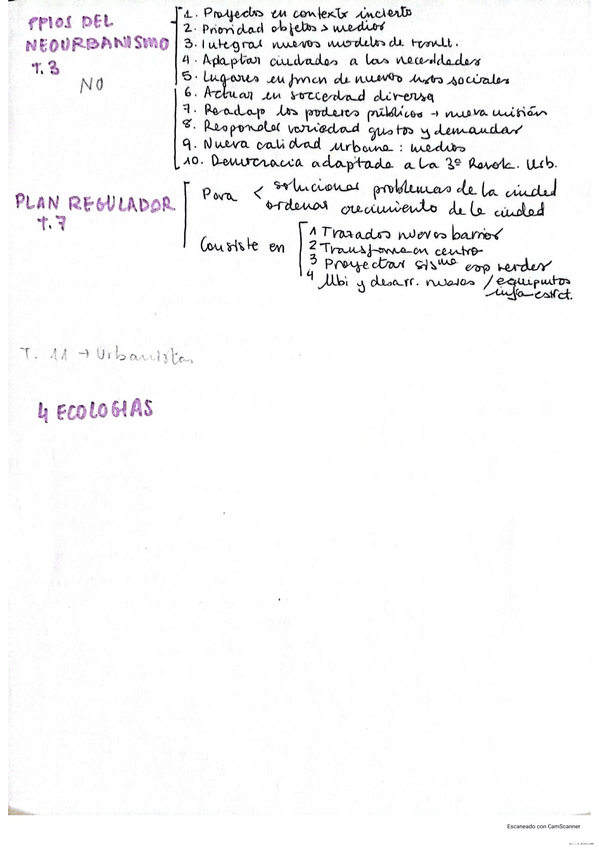 PPIOS DEL
NEOURBANISMO
T.3
NO
1. Proyectos en contexto incierto
2. Prioridad objetos > medios
3. Integrar nuevos modelos de result.
4. Adaptar ciudades a las necesidades
5. Lugares en fncn de nuevos usos sociales
6. Actuar en sociedad diversa
7. Readap los poderes públicos → nueva misión
8. Responder variedad gustos y demandas
9. Nueva calidad urbana: medios
10. Democracia adaptada a la 3ª Revok. Urb.
PLAN REGULADOR
T.7
Para < solucionar problemas de la ciudad
ordenar crecimiento de la ciudad
Consiste en
1 Trazados nuevos barrios
2 Transforma en centro
3 Proyectar sisma esp verdes
4 Ubi y desarr. nuevos / equipmtos
infraestrct.
T. 11 → Urbanistas
4 ECOLOGIAS
Escaneado con CamScanner